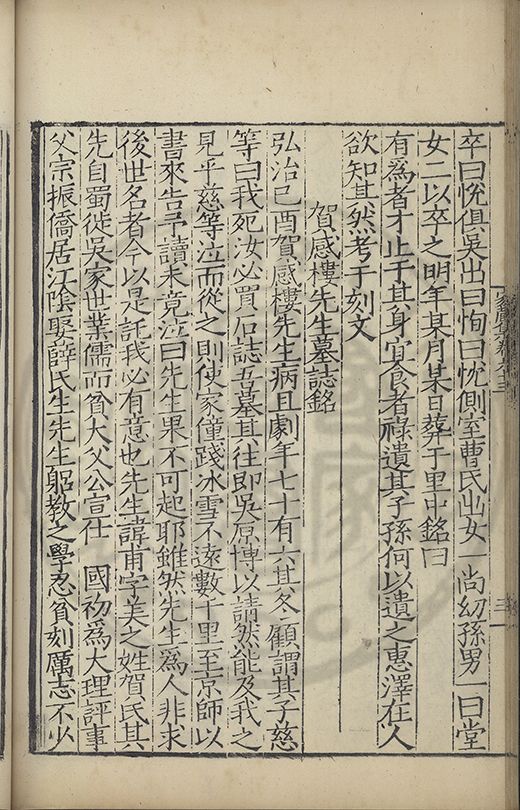 卒曰恱俱吳出曰恂曰忱側室曹氏出女一尚幼孫男一曰堂
女二以卒之明年某月某日葬于里中銘曰
有為者才止于其身宜食者祿遺其子孫何以遺之惠澤在人
欲知其然考于刻文
賀感樓先生墓誌銘
弘治己酉賀感樓先生病且劇年七十有六其冬顧謂其子慈
等曰我死汝必買石誌吾墓其往即吳原博以請然能及我之
見乎慈等泣而從之則使家僮踐冰雪不遠數千里至京師以
書來告予讀未竟泣曰先生果不可起耶雖然先生為人非求
後世名者今以是託我必有意也先生諱甫字美之姓賀氏其
先自蜀徙吳家世業儒而貧大父公宣仕 國初為大理評事
父宗振僑居江陰娶薛氏生先生躬教之學忍貧刻厲志不少